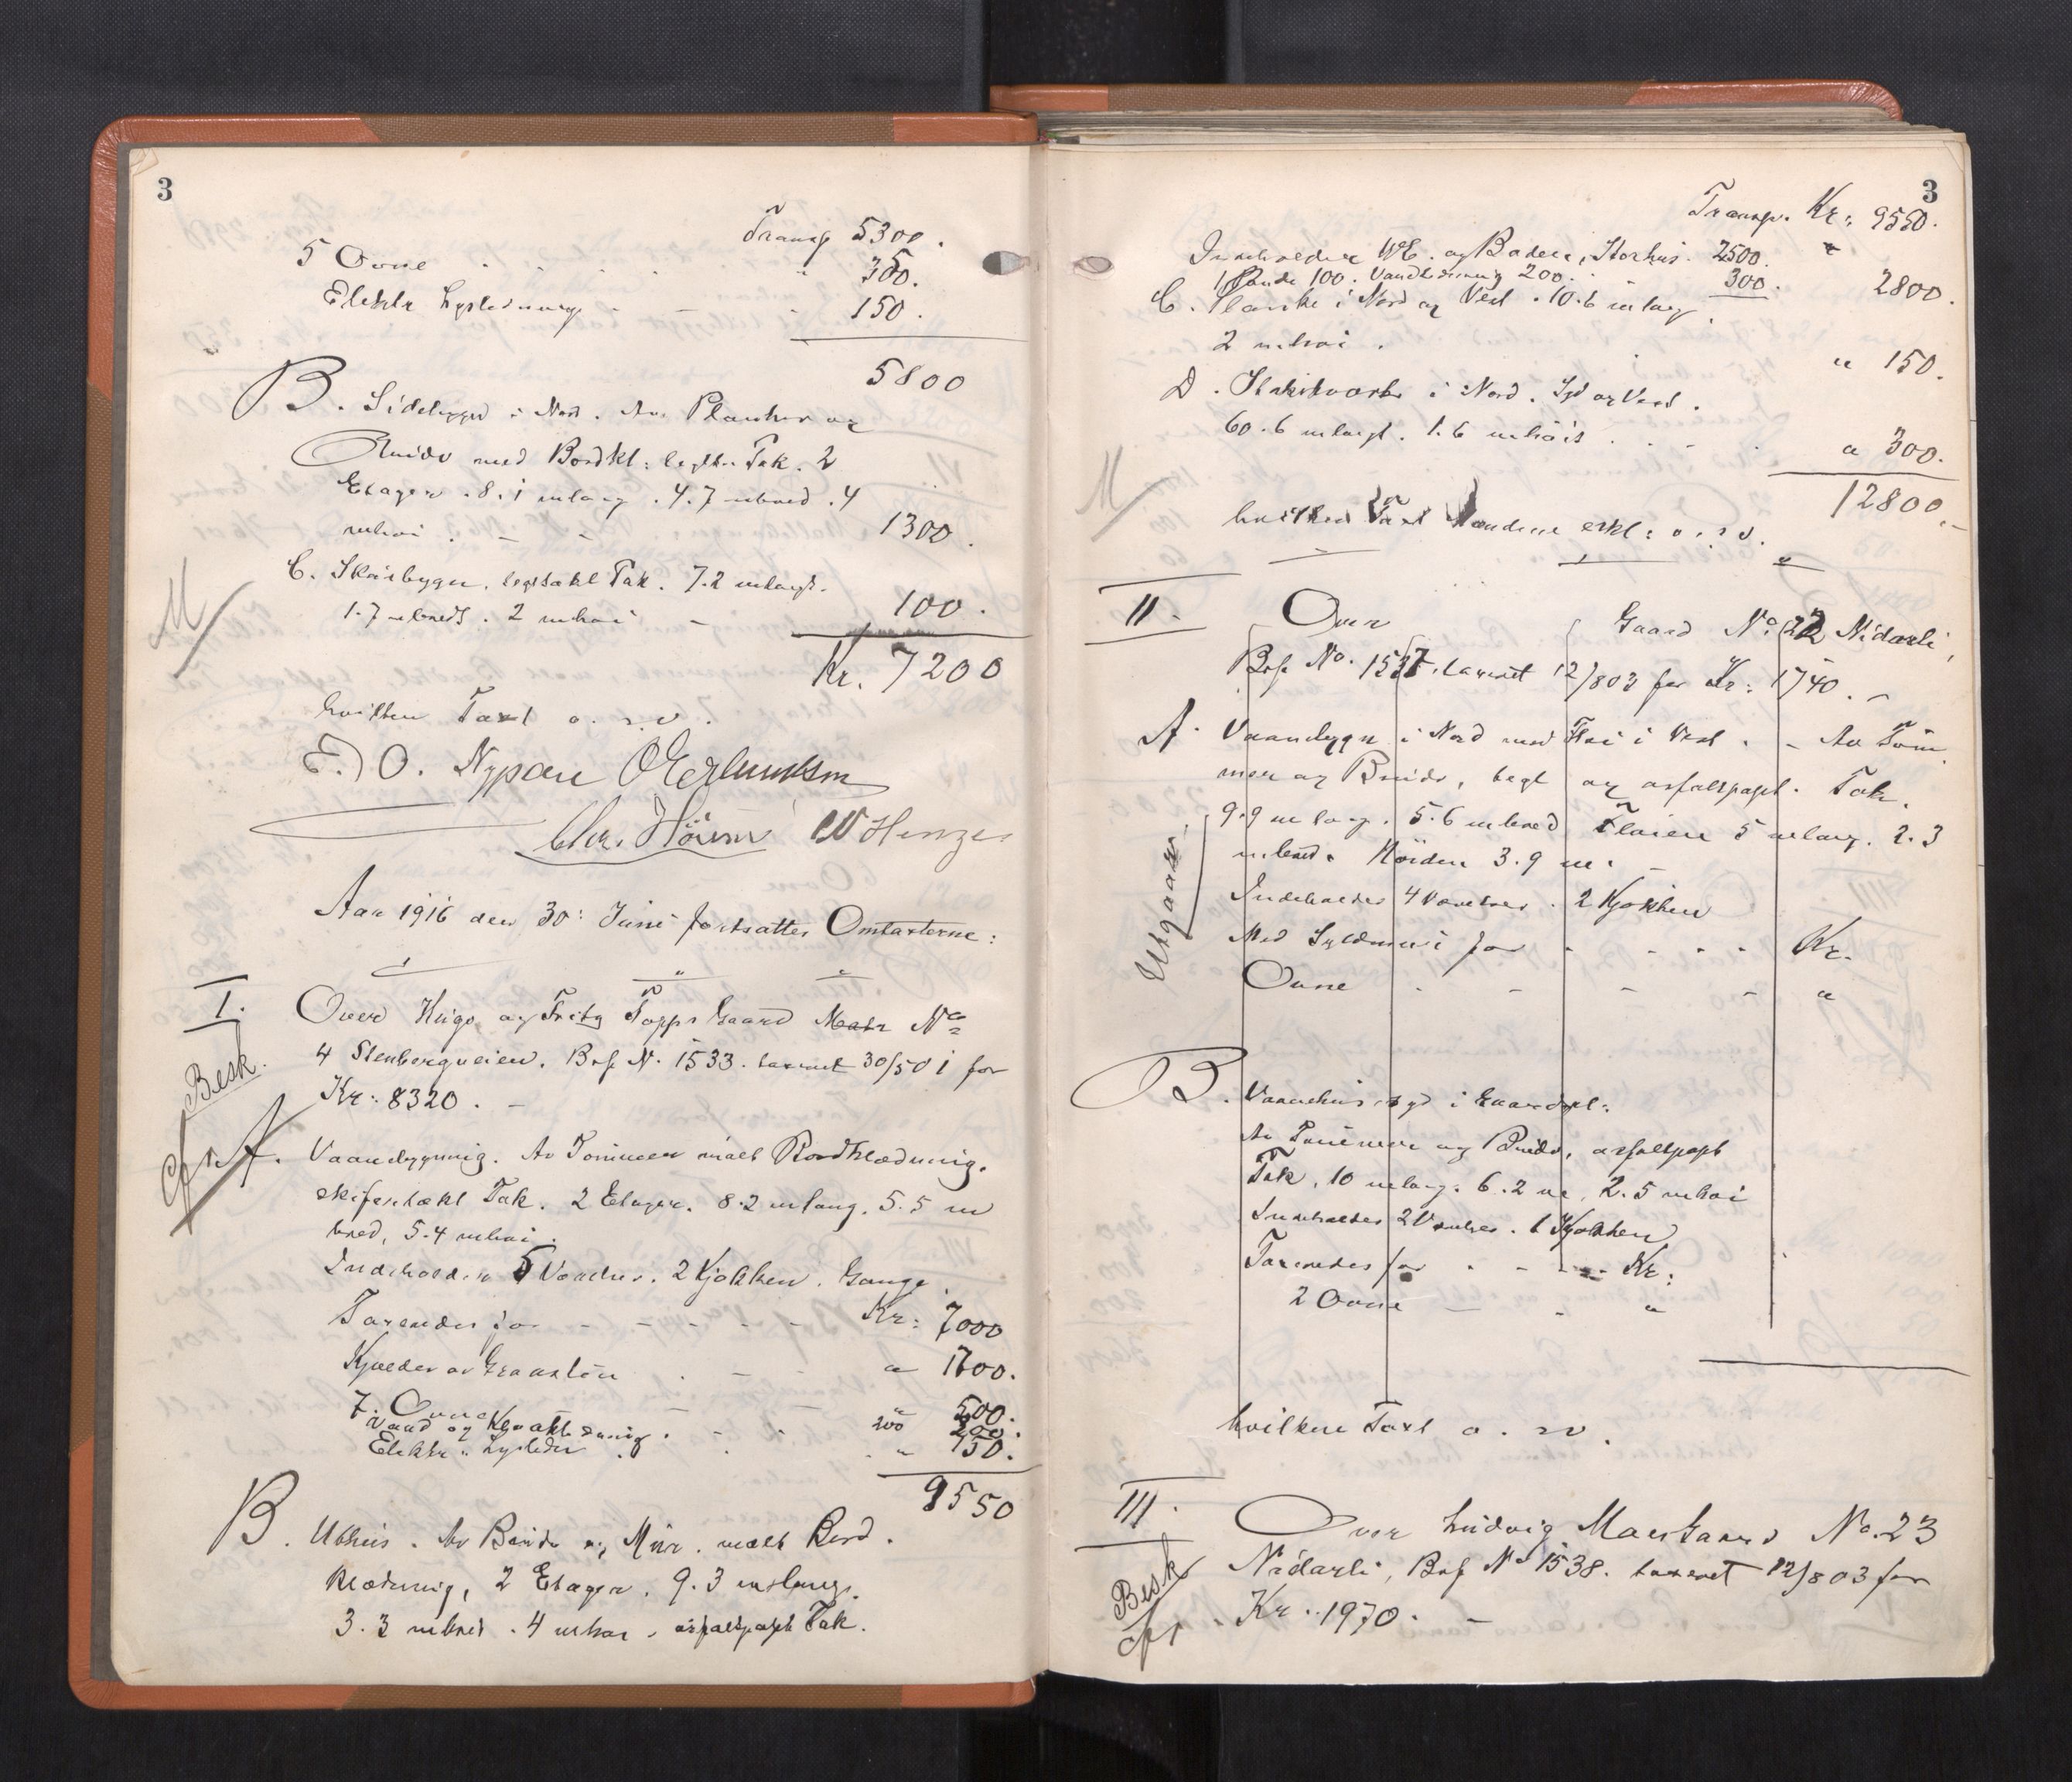 3
Transp 5300.
5 Ovne " 350.
Elektr Lysledning " 150.
5800
B. Sidebygn i Nord. Av Planker og
Bindv med Bordkl: tegltr Tak. 2
Etager. 8.1 m lang. 4.7 m bred. 4
m høi 1300.
C. Skurbygn. teglstækt Tak. 7.2 m langt.
1.7 m bredt. 2 m høi 100.
M
Kr. 7200
hvilken Taxt o. s. v.
E. O. Nypan O Erlandsen
Chr. W Hinze
Aar 1916 den 30: Juni fortsattes Omtaxterne:
I. Over Hugo og Fritz Topps Gaard Matr No
4 Stenbergveien. Bof No. 1533. taxeret 30/5 01 for
Besk.
Kr: 8320. -
cfr
A. Vaanbygning. Av Tømmer malt Bordklædning.
skifertækt Tak. 2 Etager. 8.2 m lang. 5.5 m
bred, 5.4 m høi.
Indeholder 5 Værelser. 2 Kjøkken. Gange.
Taxeredes for Kr: 7000
Kjælder av Graasten " 1700.
7. Ovne " 500.
Vand og Kloakledning. 200 200.
Elektr. Lysledn " 150.
9550
B. Uthus. Av Bindv og Mur. malt Bord.
klædning, 2 Etager. 9.3 m langt.
3.3 m bred. 4 m høi. asfaltpapt Tak.
3
Transp. Kr: 9550.
Indeholder WC. og Badev, Storhus. 2500.
1 Pande 100. Vandledning 200. 300. 2800.
C. Planke i Nord og Vest. 10.6 m lang
2 m høi. " 150.
D. Stakitværk i Nord. Syd og Vest.
60.6 m langt. 1.6 m høit " 300.
M
12800.-
hvilken Taxt Mændene erkl: o. s. v.
II. Over Gaard No. 22 Nidarli,
Bof No. 1537. taxeret 12/8 03 for Kr: 1740. -
A. Vaanbygn i Nord med Fløi i Vest. - Av Tøm
mer og Bindv, tegl og asfaltpapt. Tak.
9.9 m lang. 5.6 m bred Fløien 5 m lang. 2.3
m bred. Høiden 3.9 m.
Utgaar
Indeholder 4 Værelser. 2 Kjøkken
Med Syldmur for Kr.
Ovne "
B. Vaanehus syd i Gaardspl:
Av Tømmer og Bindv, asfaltpapt
Tak, 10 m lang. 6.2 m, 2.5 m høi
Indeholder 2 Værelser. 1 Kjøkken
Taxeredes for Kr:
2 Ovne "
hvilken Taxt o. s. v.
III. Over Ludvig Gaard No. 23
Nidarli, Bof No 1538. taxeret 12/8 03 for
Besk.
cfr.
Kr. 1970. -